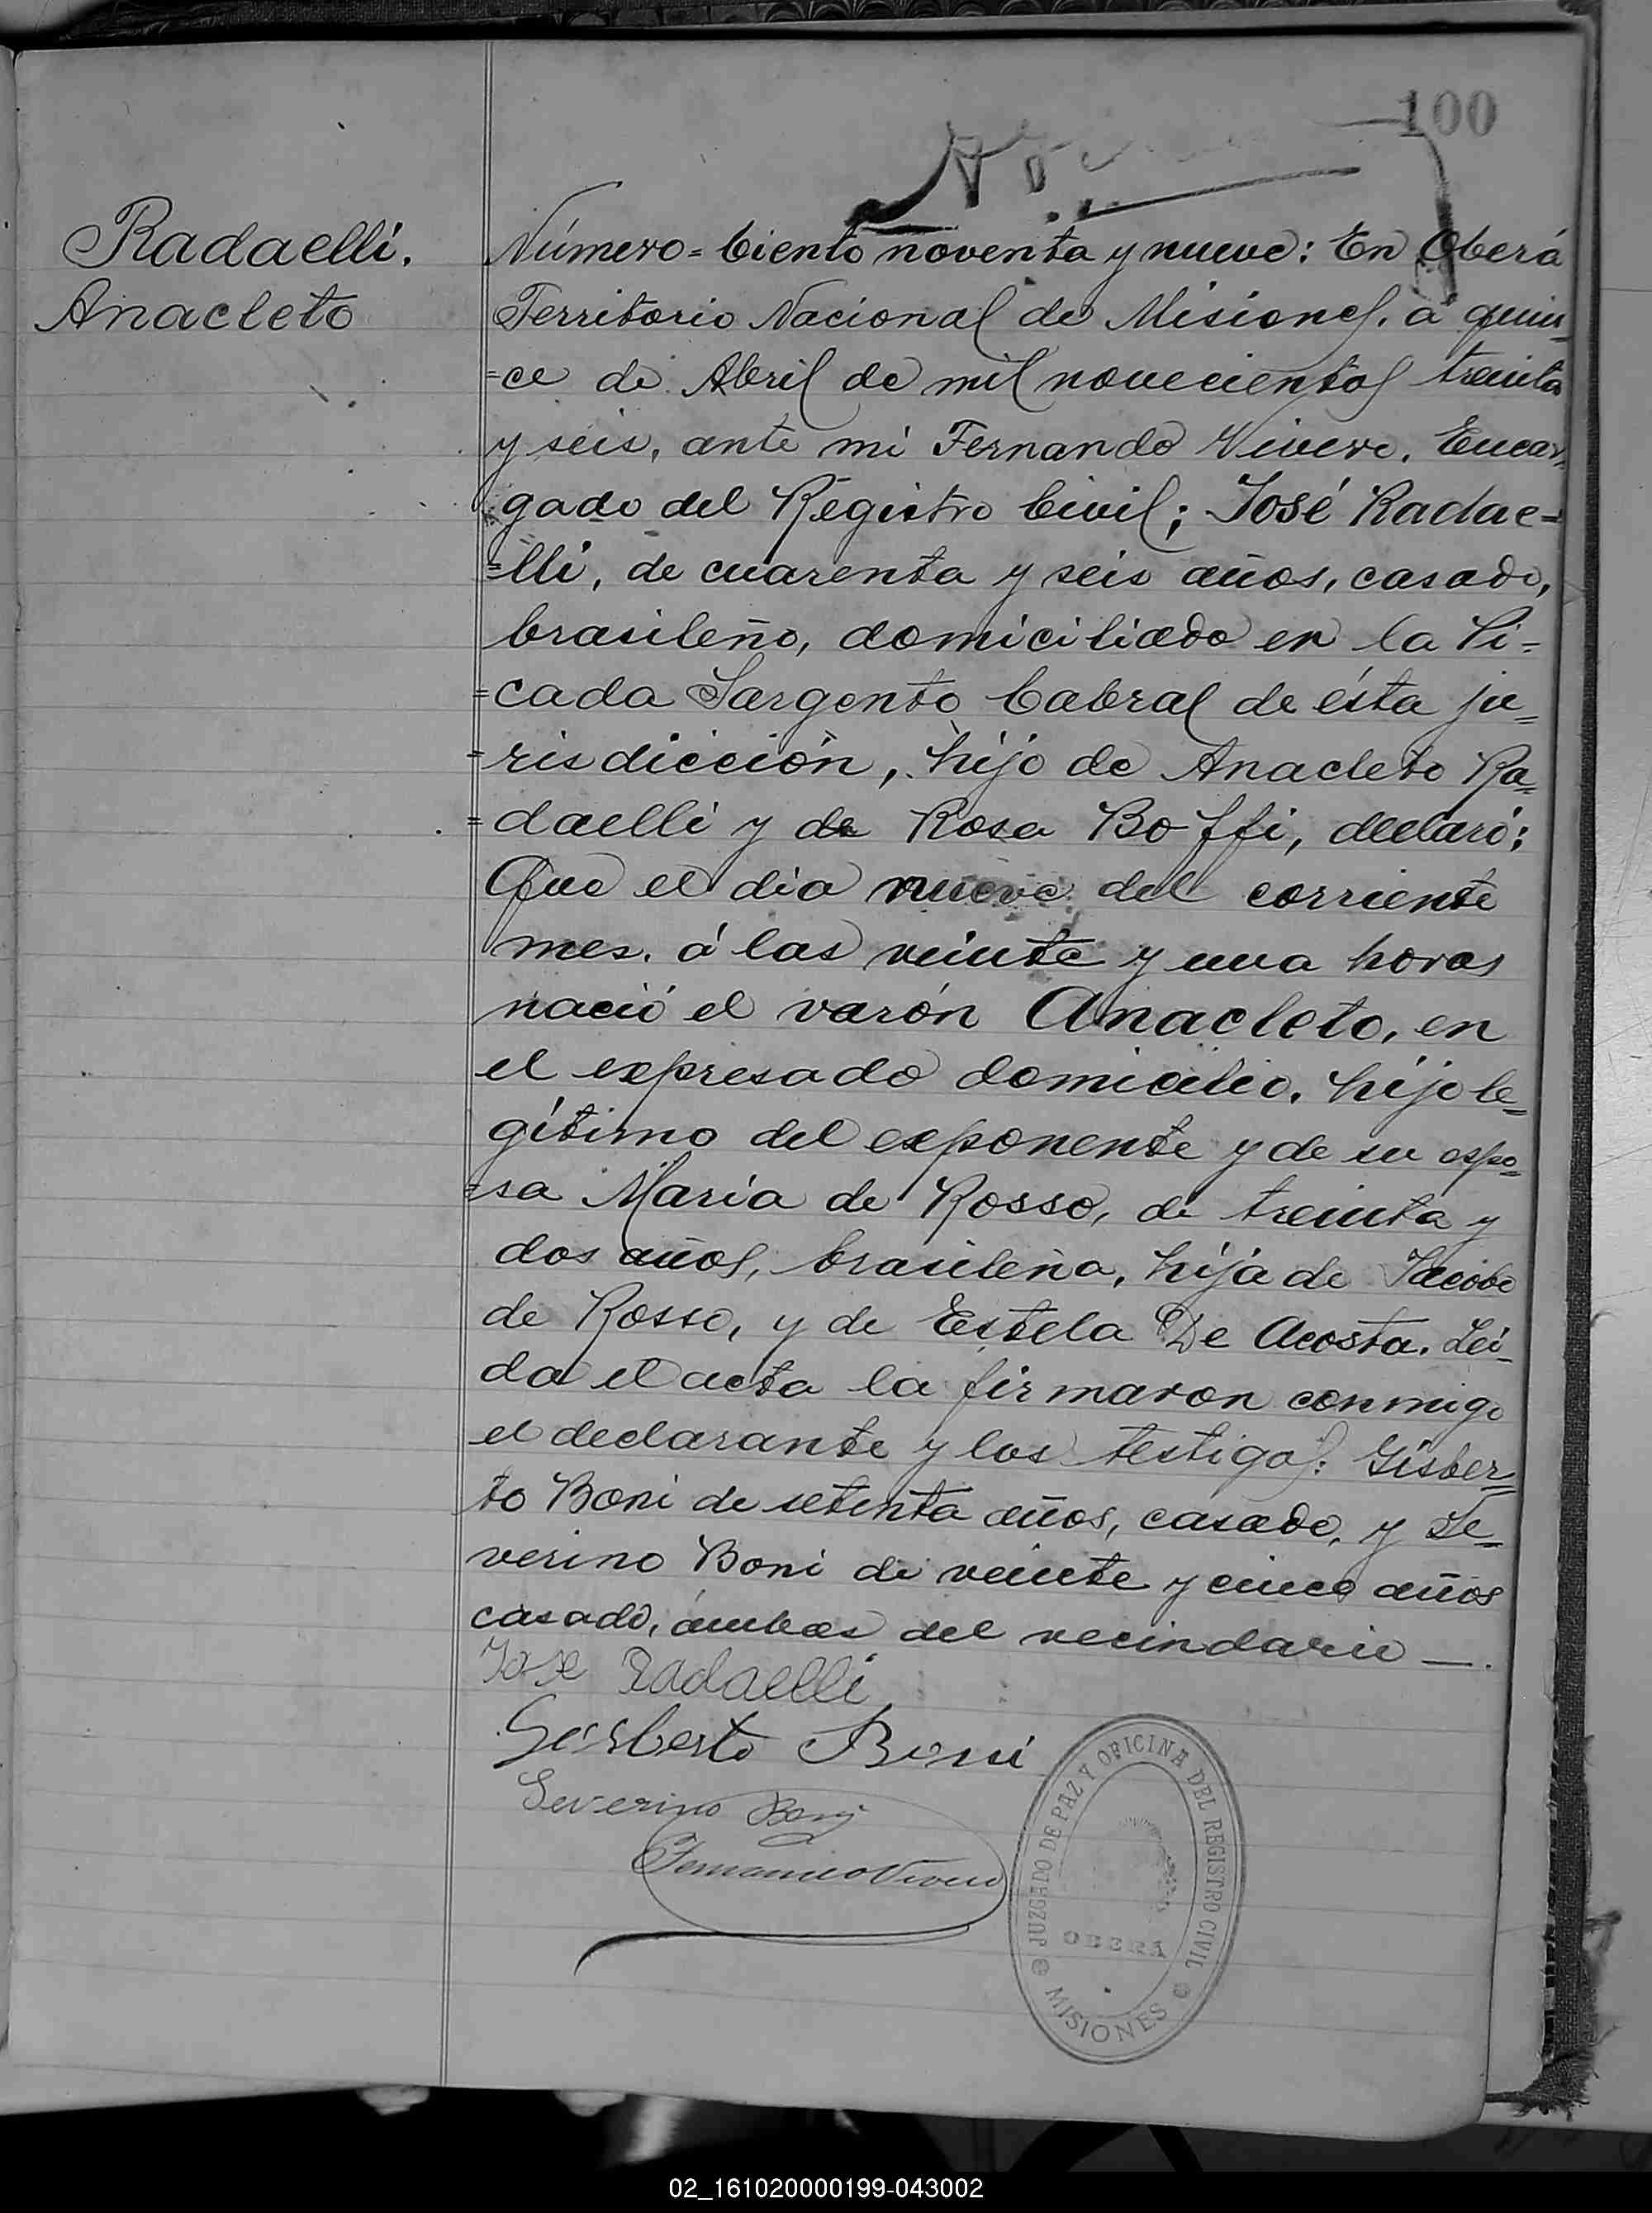 100
Radaelli.
Anacleto
Número = Ciento noventa y nueve: En Oberá
Territorio Nacional de Misiones. a quin-
=ce de Abril de mil novecientos treinta
y seis, ante mi Fernando Vivero. Encar-
gado del Registro Civil; José Radae=
=lli, de cuarenta y seis años, casado,
brasileño, domiciliado en la Pi=
=cada Sargento Cabral de ésta ju=
=risdicción, hijo de Anacleto Ra=
=daelli y de Rosa Boffi, declaró:
Que el día nueve del corriente
mes. á las veinte y una horas
nació el varón Anacleto, en
el expresado domicilio. hijo le=
gítimo del exponente y de su espo=
=sa María de Rosso, de treinta y
dos años, brasileña, hija de Jacobo
de Rosso, y de Estela De Acosta. Leí-
da el acta la firmaron conmigo
el declarante y los testigos: Gisber=
to Boni de setenta años, casado, y Se=
verino Boni de veinte y cinco años
casado, ámbos del vecindario —.
Jose Radaelli
Gisberto Boni
Severino Boni
Fernando Vivero
JUZGADO DE PAZ Y OFICINA DEL REGISTRO CIVIL
OBERÁ
MISIONES
02_161020000199-043002